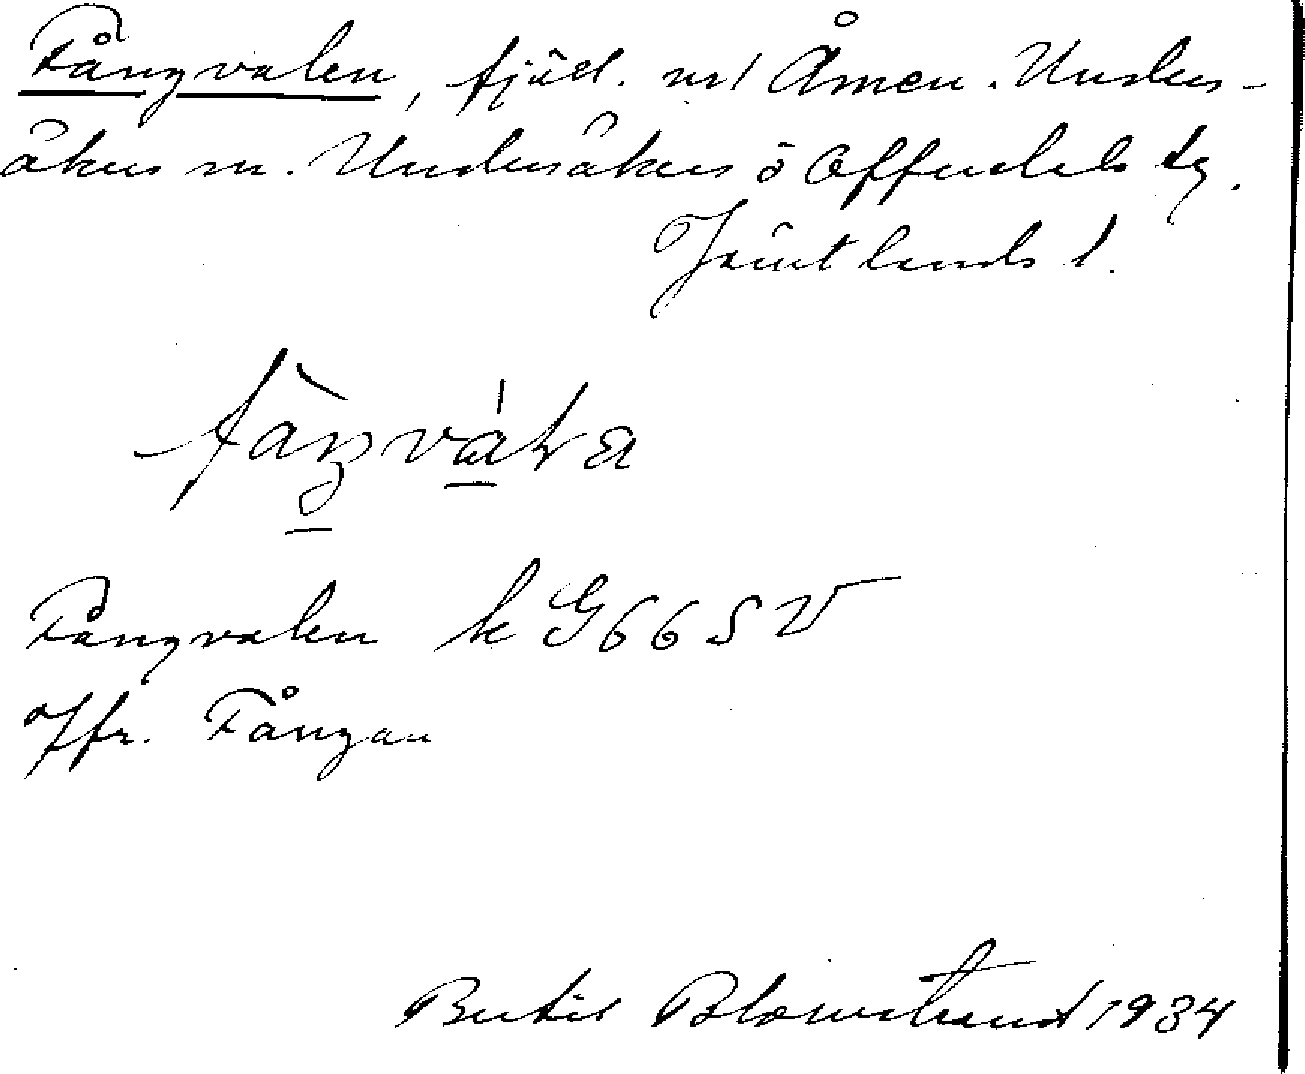 Fångvalen, fjäll. nr 1 Åmen. Unders-
åkers sn. Undersåkers o Offerdals tg.
Jämtlands l.
Fångvalen k G 66 S V
Jfr. Fångau
Bertil Blomstrand 1934